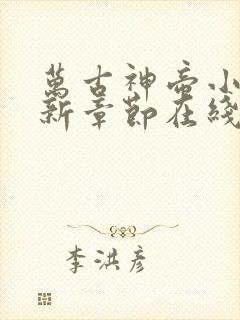 萬古神帝小
新章節在綫
李洪彦